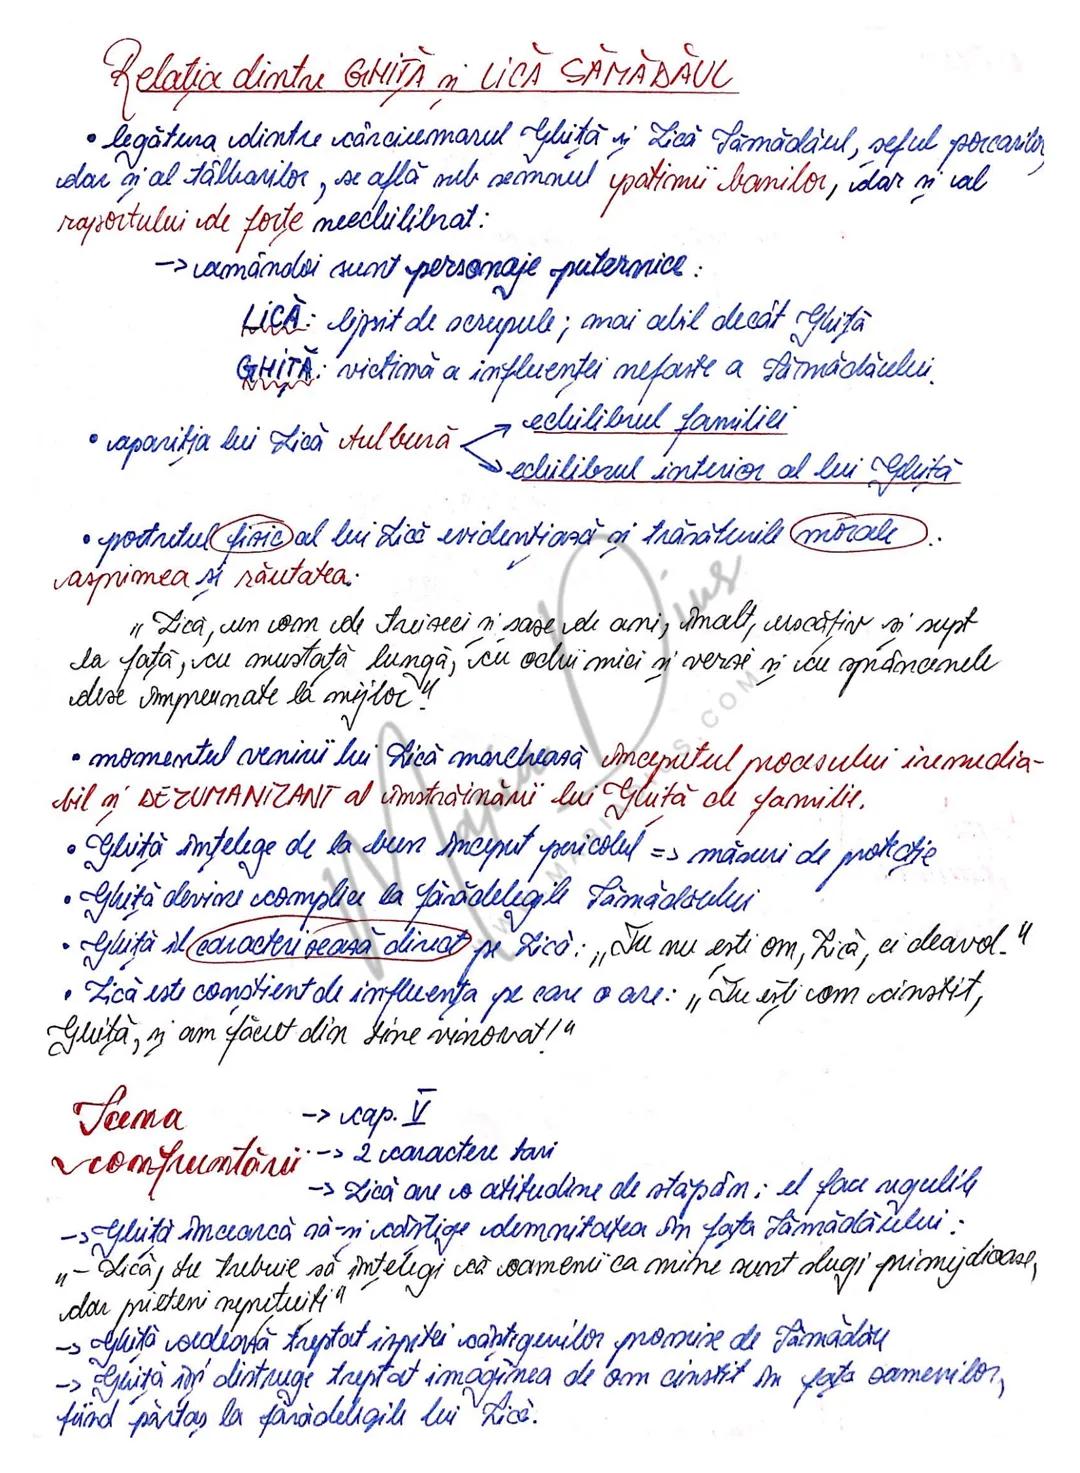 Relația dintre GHIȚĂ și LICĂ SĂMĂDĂUL
• legătura dintre cârciumarul Ghiță și Lică Sămădăul, șeful porcarilor,
dar și al tâlharilor, se află sub semnul patimii banilor, dar și al
raportului de forțe neechilibrat:
-> amândoi sunt personaje puternice:
LICĂ: lipsit de scrupule; mai abil decât Ghiță
GHIȚĂ: victimă a influenței nefaste a Sămădăului.
• apariția lui Lică tulbură -> echilibrul familiei
-> echilibrul interior al lui Ghiță
• portretul fizic al lui Lică evidențiază și trăsăturile morale:
asprimea și răutatea:
„Lică, un om de treizeci și șase de ani, înalt, uscățiv și supt
la față, cu mustață lungă, cu ochii mici și verzi și cu sprâncenele
dese împreunate la mijloc"
• momentul venirii lui Lică marchează începutul procesului iremedia-
bil și DEZUMANIZANT al înstrăinării lui Ghiță de familie.
• Ghiță înțelege de la bun început pericolul => măsuri de protecție
• Ghiță devine complice la fărădelegile Sămădăului
• Ghiță îl caracterizează direct pe Lică: „Tu nu ești om, Lică, ci diavol."
• Lică este conștient de influența pe care o are: „Tu ești om cinstit,
Ghiță, și am făcut din tine vinovat!"
Scena -> cap. V
confruntării -> 2 caractere tari
-> Lică are o atitudine de stăpân; el face regulile
-> Ghiță încearcă să-și câștige demnitatea în fața Sămădăului:
„- Lică, tu trebuie să înțelegi că oamenii ca mine sunt slugi primejdioase,
dar prieteni neprețuiți"
-> Ghiță cedează treptat ispitei câștigurilor promise de Sămădău
-> Ghiță își distruge treptat imaginea de om cinstit în fața oamenilor,
fiind părtaș la fărădelegile lui Lică.
Maria Dius